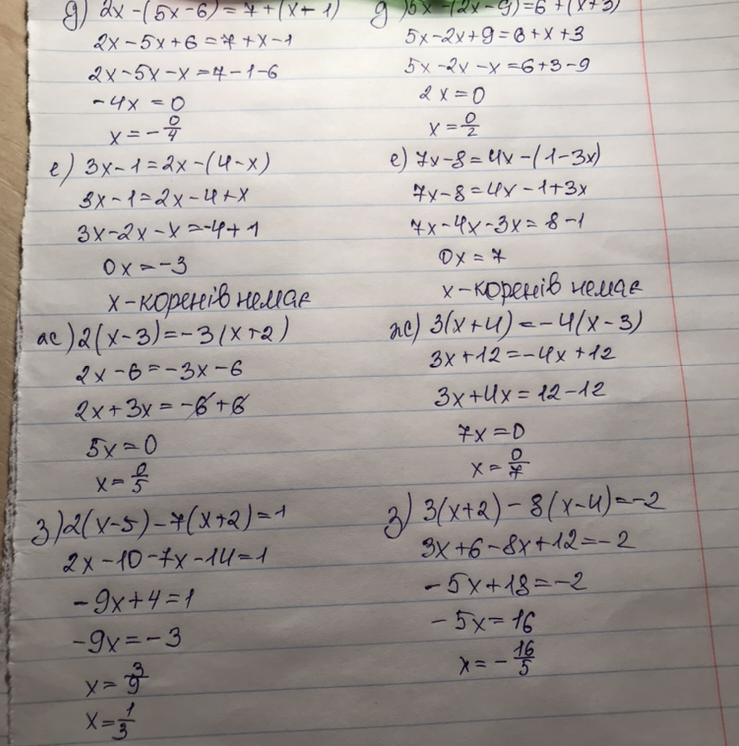 д) 2x-(5x-6)=7+(x-1)
2x-5x+6=7+x-1
2x-5x-x=7-1-6
-4x=0
x=-0/4
е) 3x-1=2x-(4-x)
3x-1=2x-4+x
3x-2x-x=-4+1
0x=-3
x-коренів немає
ж) 2(x-3)=-3(x+2)
2x-6=-3x-6
2x+3x=-6+6
5x=0
x=0/5
з) 2(x-5)-7(x+2)=1
2x-10-7x-14=1
-9x+4=1
-9x=-3
x=3/9
x=1/3
д) 5x-(2x-9)=6+(x+3)
5x-2x+9=6+x+3
5x-2x-x=6+3-9
2x=0
x=0/2
е) 7x-8=4x-(1-3x)
7x-8=4x-1+3x
7x-4x-3x=8-1
0x=7
x-коренів немає
ж) 3(x+4)=-4(x-3)
3x+12=-4x+12
3x+4x=12-12
7x=0
x=0/7
з) 3(x+2)-8(x-4)=-2
3x+6-8x+12=-2
-5x+18=-2
-5x=16
x=-16/5